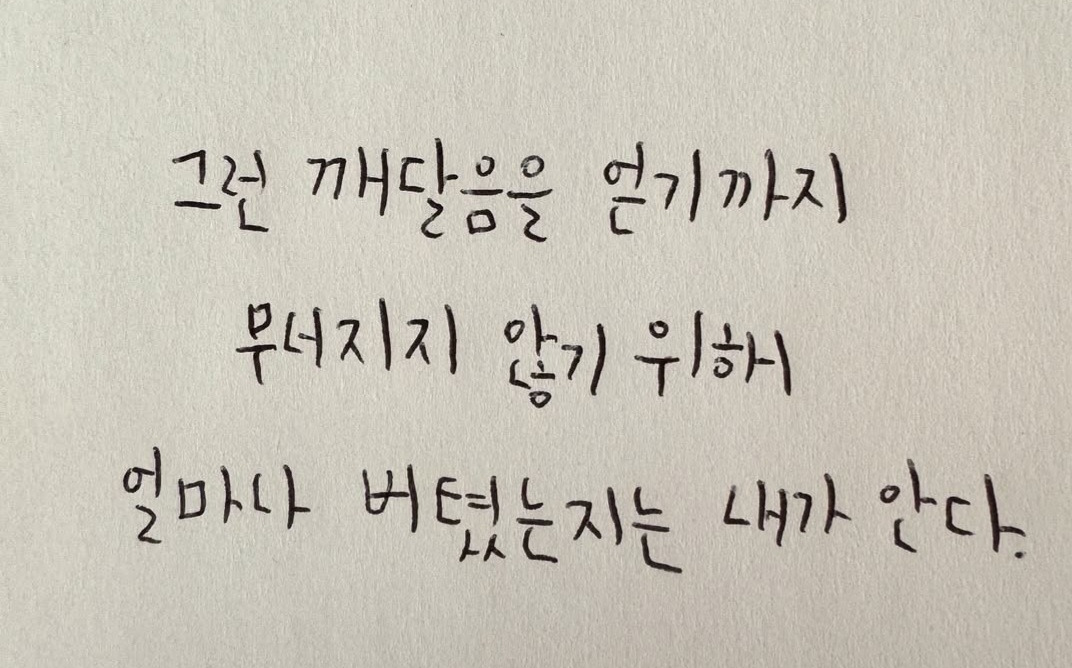 그런 깨달음을 얻기까지
무너지지 않기 위해
얼마나 버텼는지는 내가 안다.